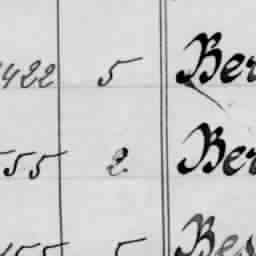 422 5 Ber
55 2. Ber
55 5 Bes